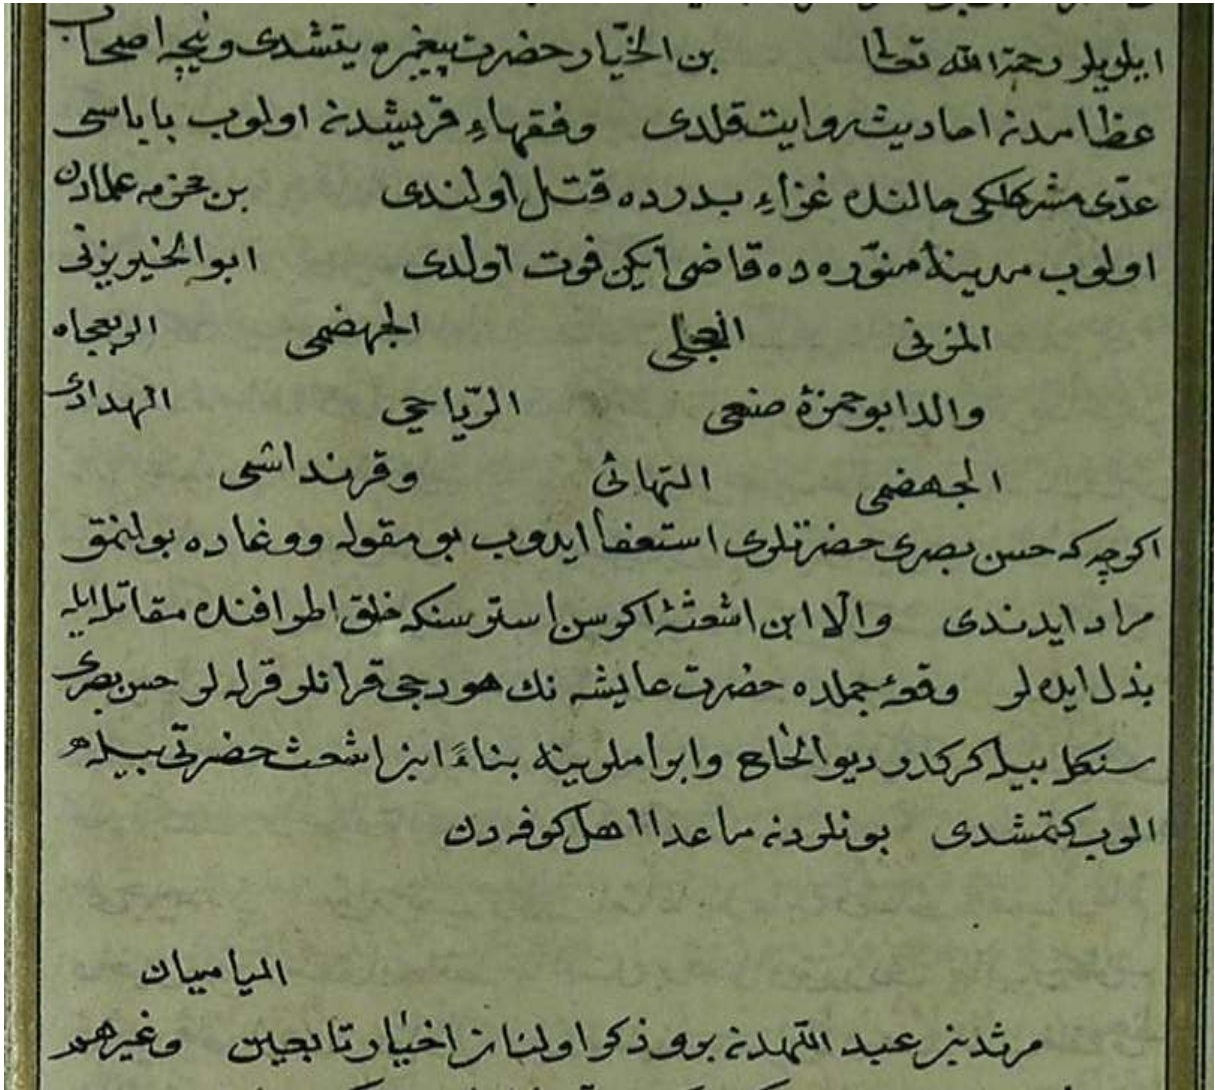 ايلويلر رحمة الله تعالى بن الخيّار حضرت پيغمبره يتشدى ونيچه اصحاب
عظامدنه احاديث روايت قلدى وفقهاءِ قريشدنه اولوب باباسى
عدّى مشركلكى حالنده غزاءِ بدرده قتل اولندى بن مخزمه علمادن
اولوب مدينۀ منوّره ده قاضى ايكن فوت اولدى ابوالخير يزنى
المزنى العجلى الجهضمى الربعجاه
والد ابوحمزۀ ضبعى الريّاحى الهدادى
الجهضمى التهانى وقرنداشى
اكرچه كه حسن بصرى حضرتلرى استعفا ايدوب بو مقوله ووغاده بولنمق
مراد ايدندى والا ابن اشعثه اكر سن استرسنكه خلق اطرافنده مقاتله ايله
بذل ايده لر وقعۀ جملده حضرت عايشه نك هودجى قرانلر قرله لر حسن بصرى
سنكله بيله كركدر ديو الحاح وابراملرينه بناءً ابن اشعث حضرتى بيله
الوب كتمشدى بونلردنه ماعدا اهل كوفه دن
مرثد بن عبد اللّهدنه بو ذكر اولنان اخيار تابعين وغيرهم